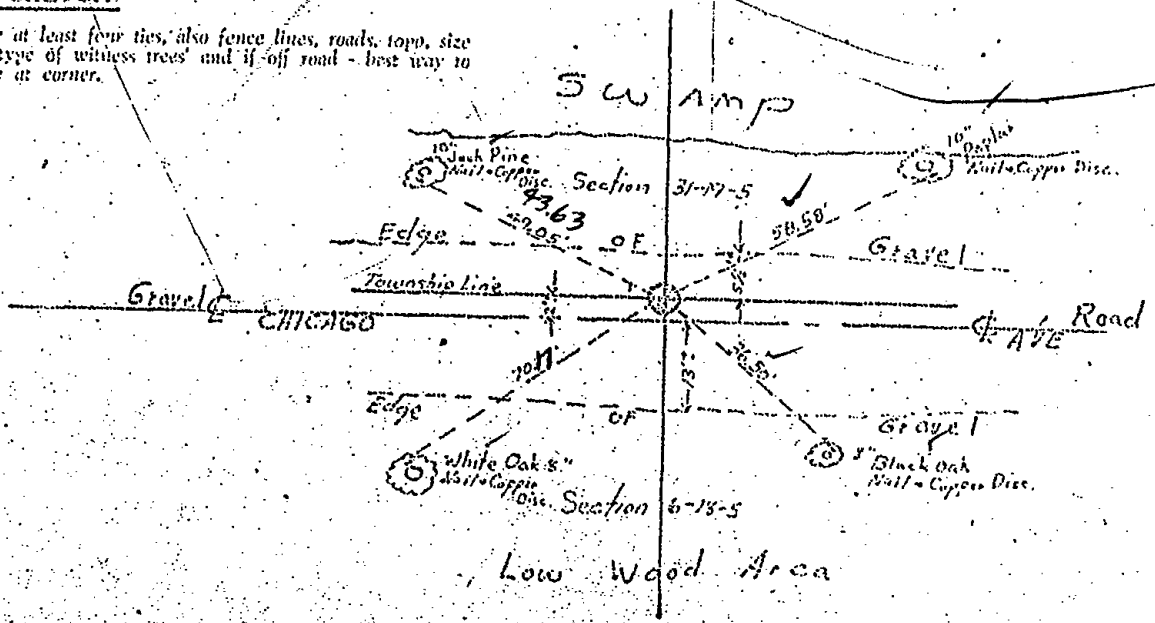 at least four ties, also fence lines, roads, topo, size
type of witness trees and if off road - best way to
at corner.
SWAMP
10"
Jack Pine
Nail & Copper
Disc.
10"
Poplar
Nail & Copper Disc.
Section 31-17-5
43.63
47.05'
58.58'
Edge OF Gravel
Township Line
Gravel ℄ CHICAGO AVE Road
℄
36.50'
13'
Edge OF Gravel
White Oak 8"
Nail & Copper
Disc.
8"
Black Oak
Nail & Copper Disc.
Section 6-18-5
Low Wood Area